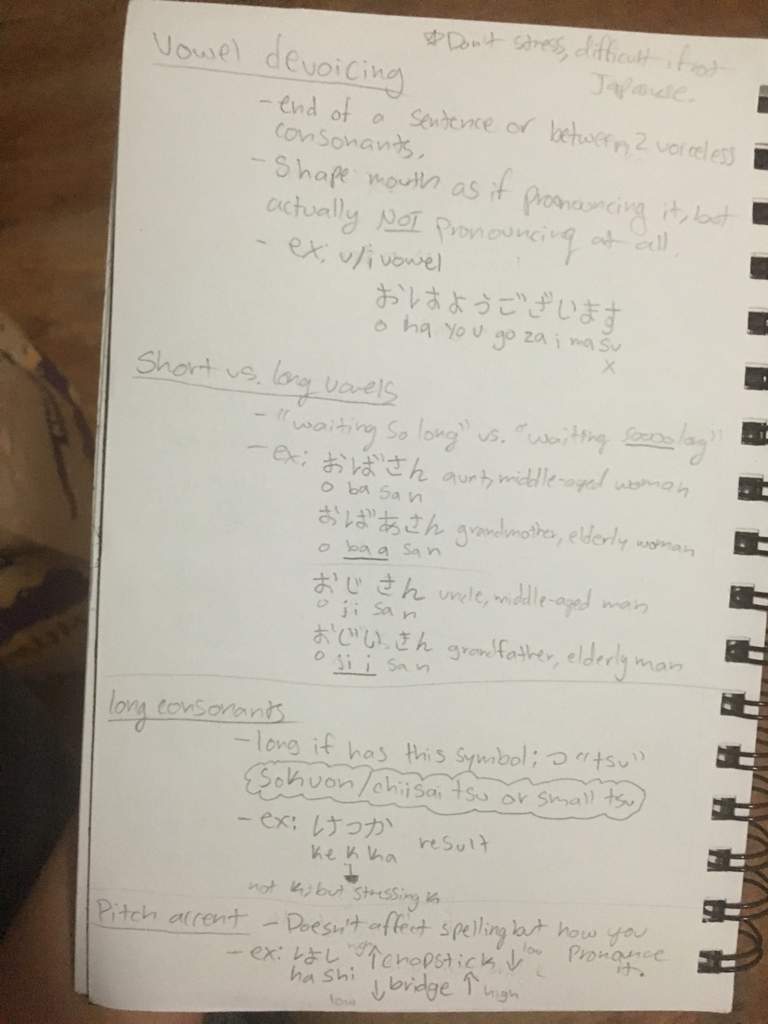 Vowel devoicing
*Don't stress, difficult if not
Japanese.
- end of a sentence or between 2 voiceless
consonants.
- Shape mouth as if pronouncing it, but
actually NOT pronouncing at all.
- ex: u/i vowel
おはようございます
o ha you go za i ma su
x
Short vs. long vowels
- "waiting so long" vs. "waiting soooo long"
- ex: おばさん aunt, middle-aged woman
o ba san
おばあさん grandmother, elderly woman
o baa san
おじさん uncle, middle-aged man
o ji san
おじいさん grandfather, elderly man
o ji i san
long consonants
- long if has this symbol; つ "tsu"
sokuon/chiisai tsu or small tsu
- ex: けっか result
ke k ka
↓
not k, but stressing k
Pitch accent - Doesn't affect spelling but how you
pronounce it.
- ex: はし high ↑chopstick ↓ low
ha shi ↓bridge ↑ high
low